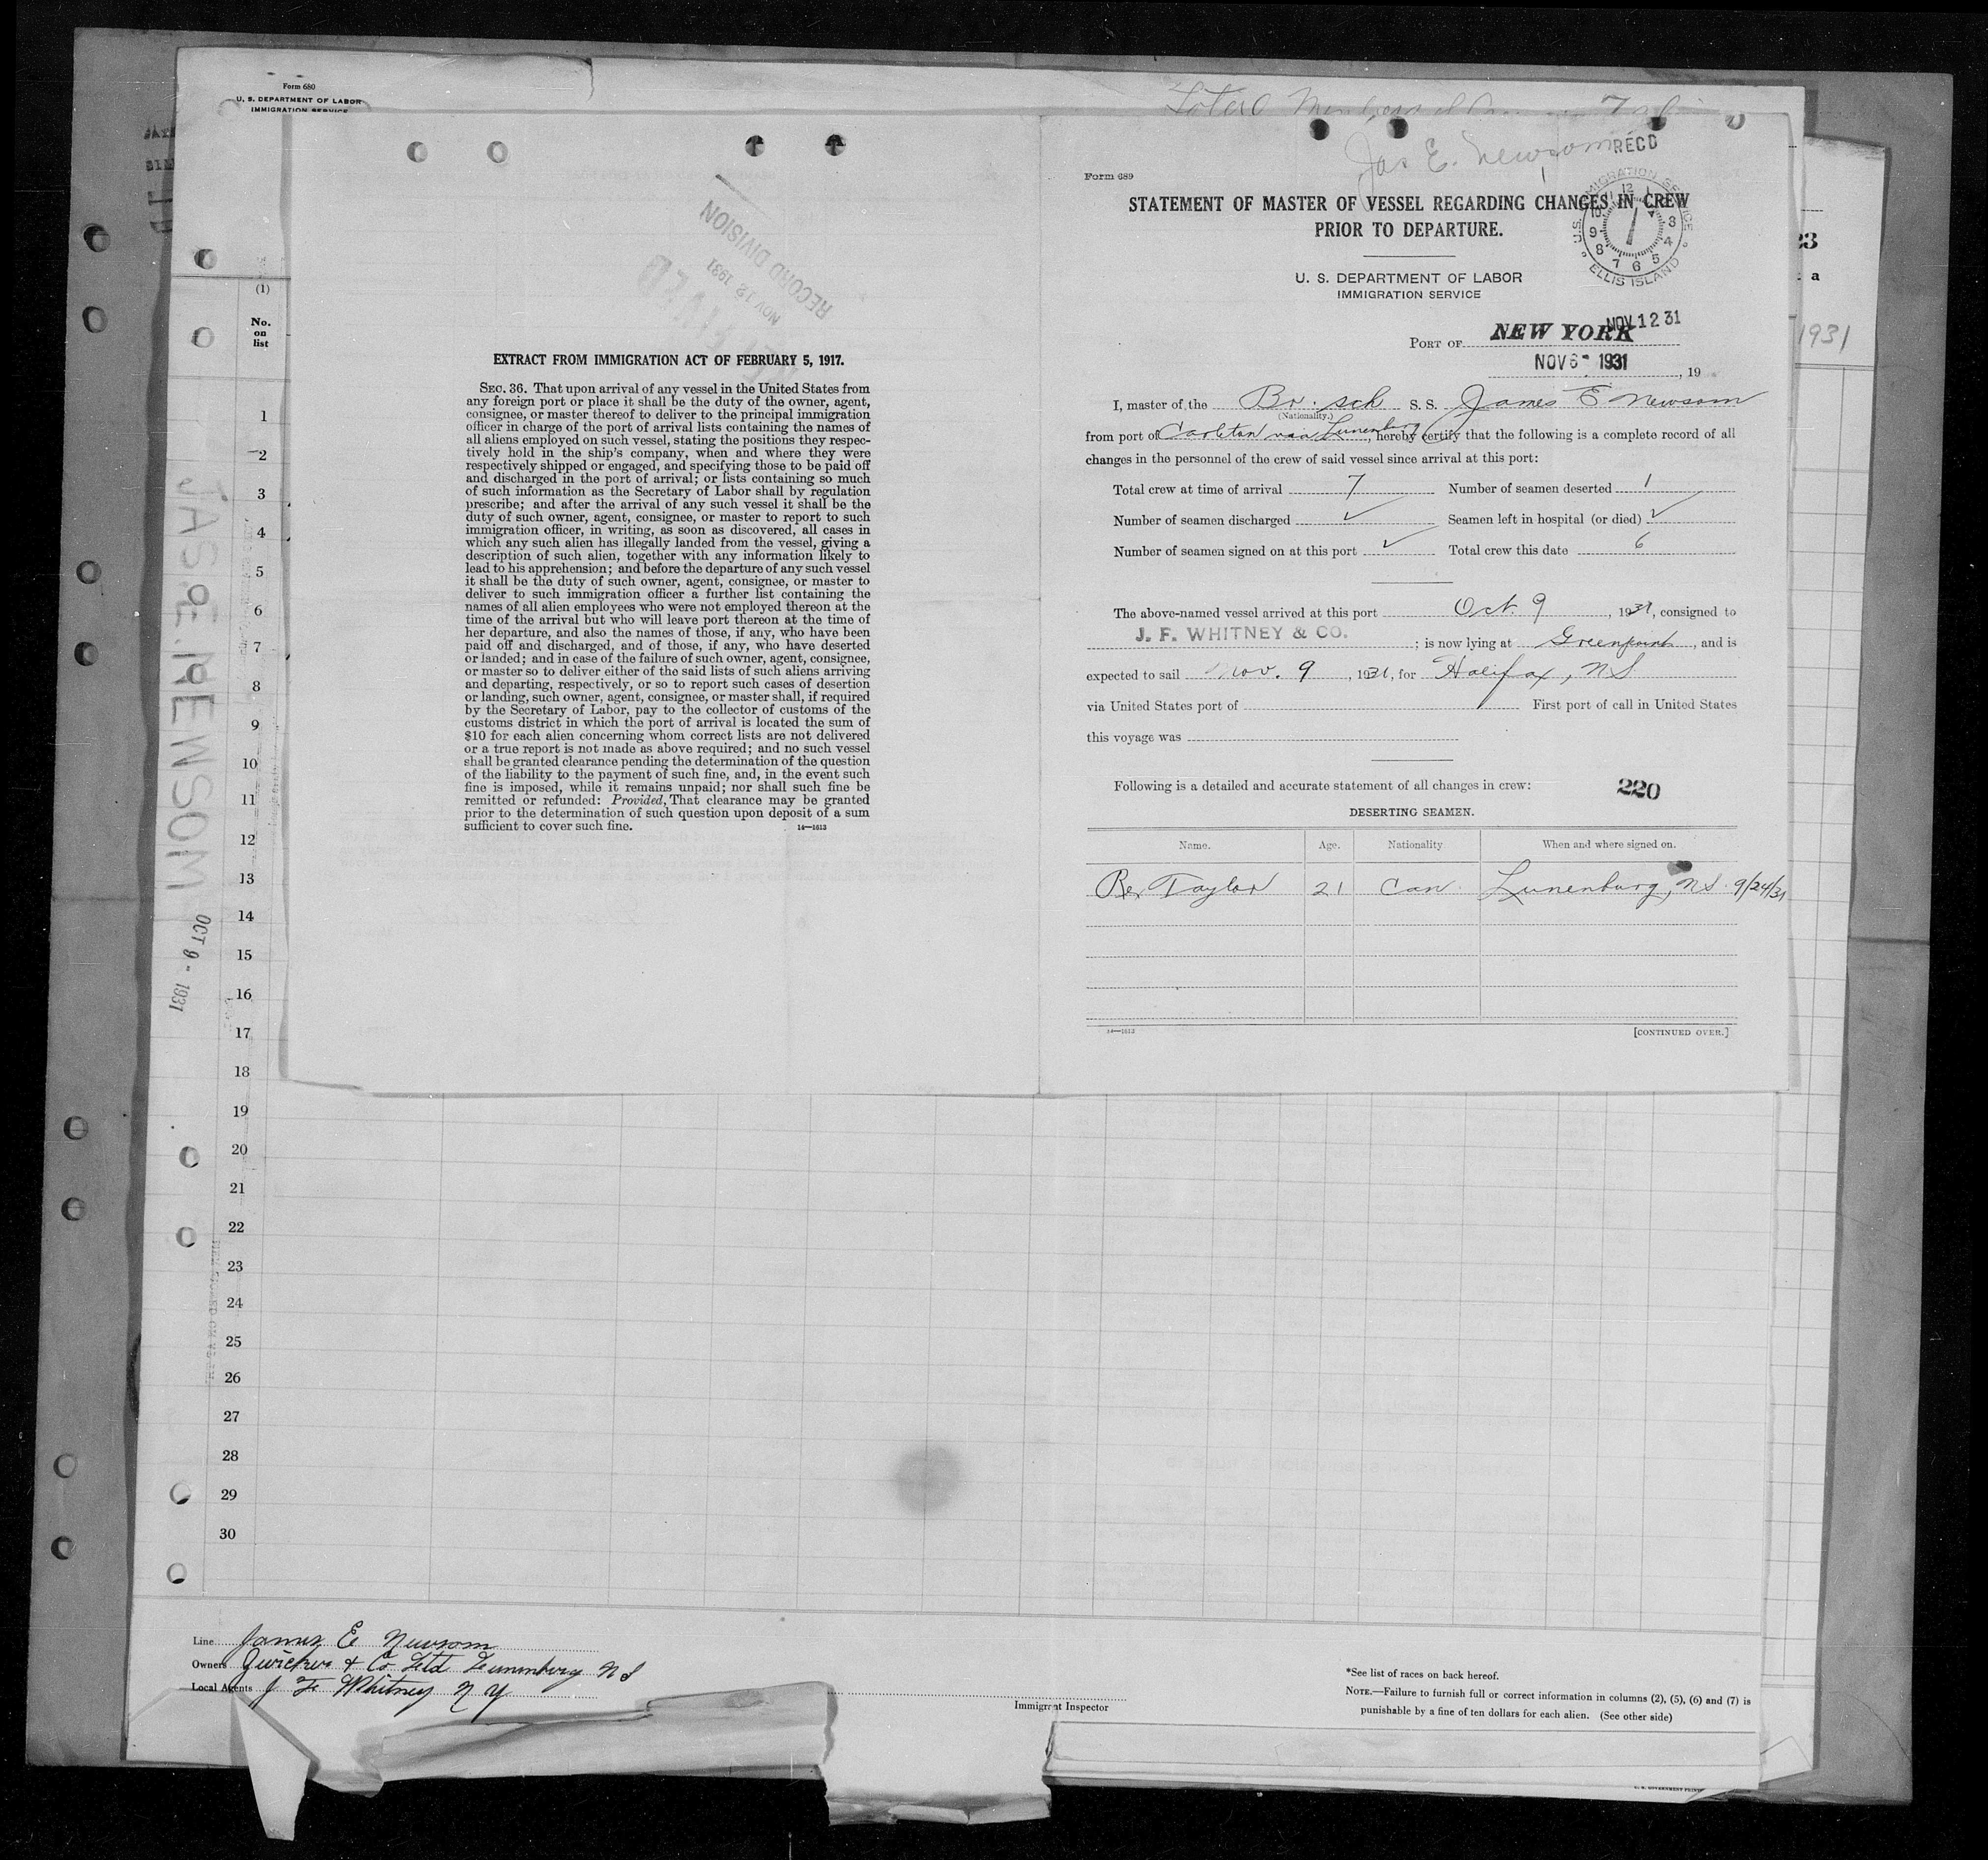 Form 680
U. S. DEPARTMENT OF LABOR
IMMIGRATION SERVICE
Total Members
(1)
No.
on
list
1
2
3
4
5
6
7
8
9
10
11
12
13
14
15
16
17
18
19
20
21
22
23
24
25
26
27
28
29
30
JAS. E. NEWSOM
OCT 9 - 1931
RECORD DIVISION
NOV 12 1931
EXTRACT FROM IMMIGRATION ACT OF FEBRUARY 5, 1917.
SEC. 36. That upon arrival of any vessel in the United States from
any foreign port or place it shall be the duty of the owner, agent,
consignee, or master thereof to deliver to the principal immigration
officer in charge of the port of arrival lists containing the names of
all aliens employed on such vessel, stating the positions they respec-
tively hold in the ship's company, when and where they were
respectively shipped or engaged, and specifying those to be paid off
and discharged in the port of arrival; or lists containing so much
of such information as the Secretary of Labor shall by regulation
prescribe; and after the arrival of any such vessel it shall be the
duty of such owner, agent, consignee, or master to report to such
immigration officer, in writing, as soon as discovered, all cases in
which any such alien has illegally landed from the vessel, giving a
description of such alien, together with any information likely to
lead to his apprehension; and before the departure of any such vessel
it shall be the duty of such owner, agent, consignee, or master to
deliver to such immigration officer a further list containing the
names of all alien employees who were not employed thereon at the
time of the arrival but who will leave port thereon at the time of
her departure, and also the names of those, if any, who have been
paid off and discharged, and of those, if any, who have deserted
or landed; and in case of the failure of such owner, agent, consignee,
or master so to deliver either of the said lists of such aliens arriving
and departing, respectively, or so to report such cases of desertion
or landing, such owner, agent, consignee, or master shall, if required
by the Secretary of Labor, pay to the collector of customs of the
customs district in which the port of arrival is located the sum of
$10 for each alien concerning whom correct lists are not delivered
or a true report is not made as above required; and no such vessel
shall be granted clearance pending the determination of the question
of the liability to the payment of such fine, and, in the event such
fine is imposed, while it remains unpaid; nor shall such fine be
remitted or refunded: Provided, That clearance may be granted
prior to the determination of such question upon deposit of a sum
sufficient to cover such fine.
14—1613
Jas E. Newsom
RECD
Form 689
STATEMENT OF MASTER OF VESSEL REGARDING CHANGES IN CREW
PRIOR TO DEPARTURE.
U.S. IMMIGRATION SERVICE
ELLIS ISLAND
U. S. DEPARTMENT OF LABOR
IMMIGRATION SERVICE
NOV 12 31
PORT OF NEW YORK
NOV 6 - 1931, 19
I, master of the Br. sch S. S. James E Newsom
(Nationality.)
from port of Carleton via Lunenburg, hereby certify that the following is a complete record of all
changes in the personnel of the crew of said vessel since arrival at this port:
Total crew at time of arrival 7 Number of seamen deserted 1
Number of seamen discharged ✓ Seamen left in hospital (or died) ✓
Number of seamen signed on at this port ✓ Total crew this date 6
The above-named vessel arrived at this port Oct. 9, 1931, consigned to
J. F. WHITNEY & CO.; is now lying at Greenpoint, and is
expected to sail Nov. 9, 1931, for Halifax, NS
via United States port of First port of call in United States
this voyage was
Following is a detailed and accurate statement of all changes in crew:
220
DESERTING SEAMEN.
Name. Age. Nationality When and where signed on.
Rex Taylor 21 Can. Lunenburg, NS 9/24/31
14—1613
[CONTINUED OVER.]
23
a
1931
Line James E Newsom
Owners Zwicker & Co Ltd Lunenburg N S
Local Agents J F Whitney N Y
Immigrant Inspector
*See list of races on back hereof.
NOTE.—Failure to furnish full or correct information in columns (2), (5), (6) and (7) is
punishable by a fine of ten dollars for each alien. (See other side)